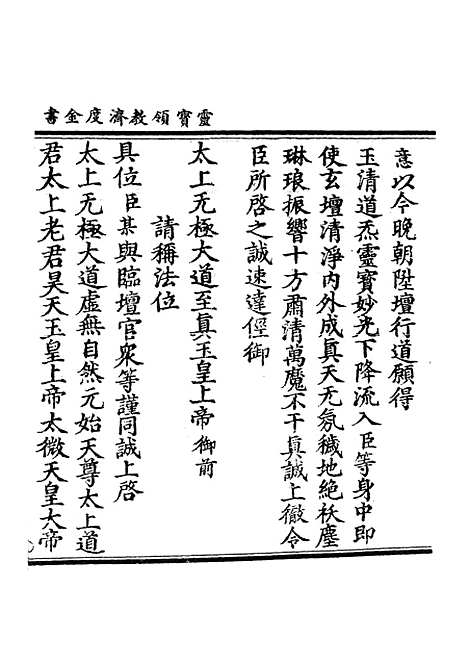 靈寶領教濟度金書
意以今晚朝陞壇行道願得
玉清道炁靈寶妙光下降流入臣等身中即
使玄壇清淨内外成真天无氛穢地絶祅塵
琳琅振響十方肅清萬魔不干眞誠上徹令
臣所啓之誠速達徑御
太上无極大道至眞玉皇上帝御前
請稱法位
具位臣某與臨壇官衆等謹同誠上啓
太上无極大道虛無自然元始天尊太上道
君太上老君昊天玉皇上帝太微天皇大帝